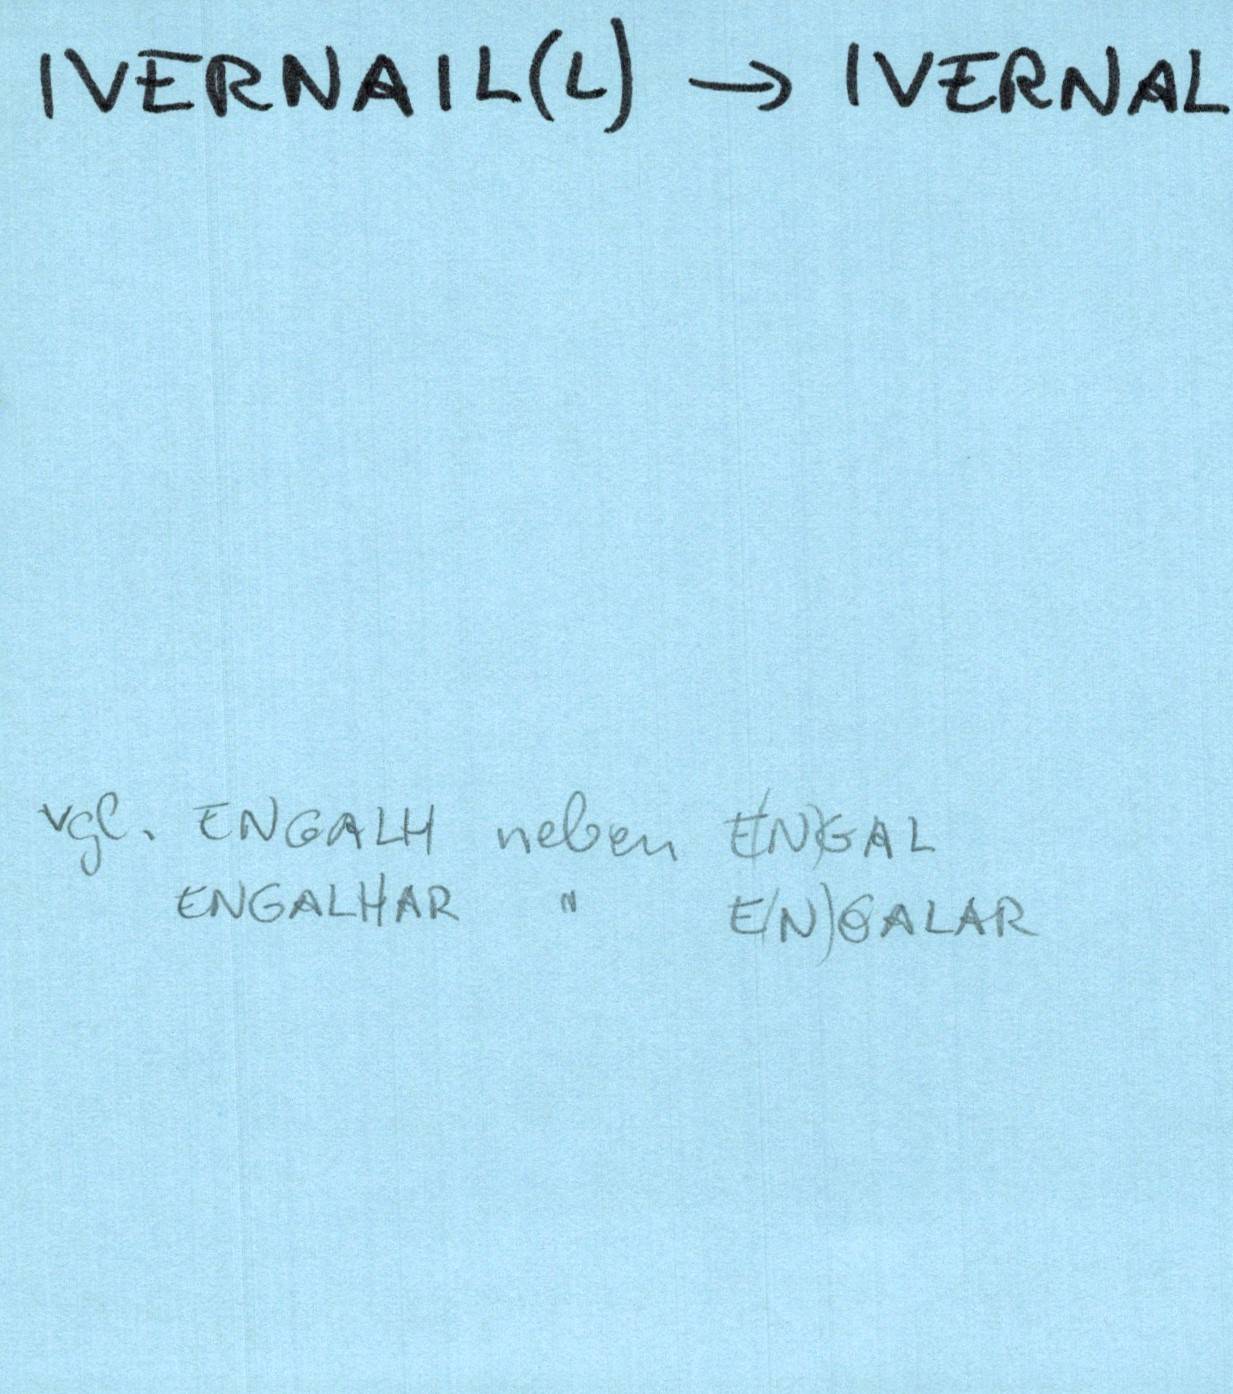 IVERNAIL(L) → IVERNAL
vgl. ENGALH neben E(N)GAL
ENGALHAR " E(N)GALAR